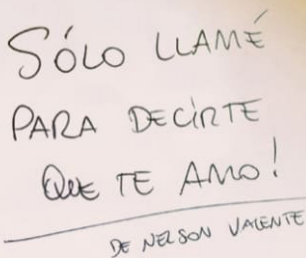 SÓLO LLAMÉ
PARA DECIRTE
QUE TE AMO!
DE NELSON VALENTE